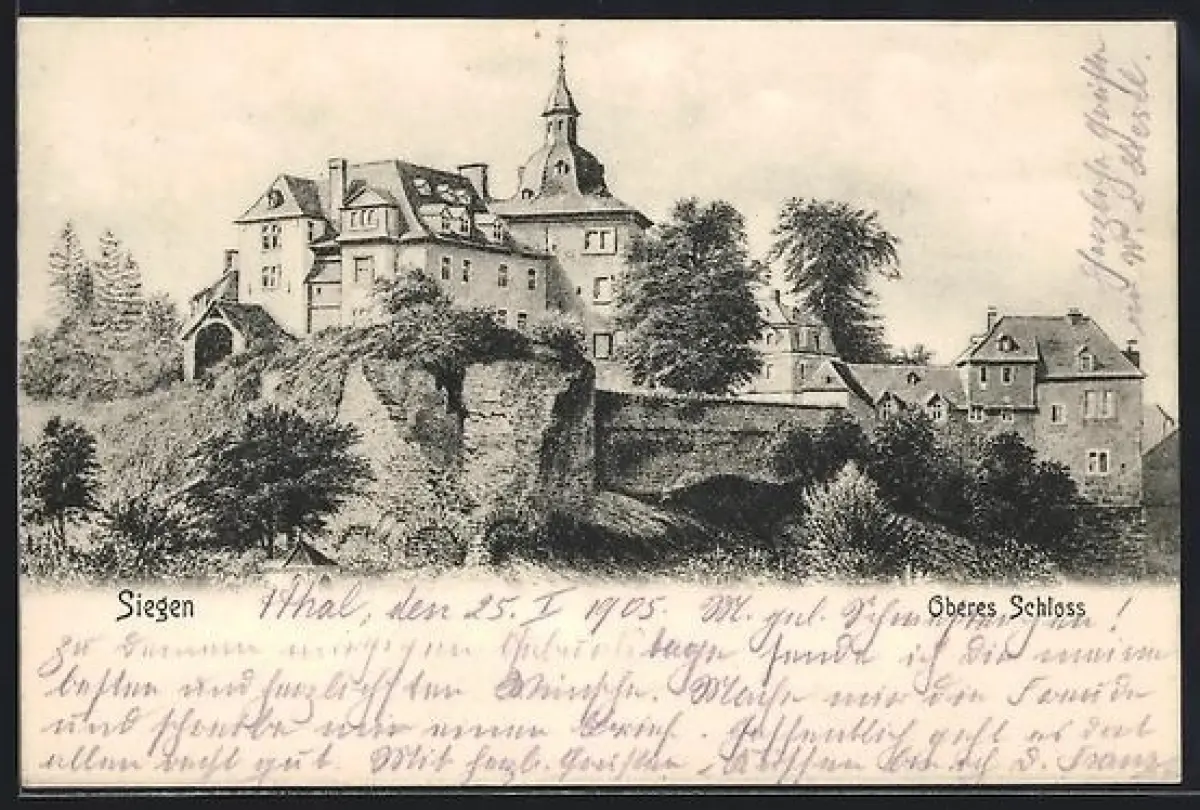 Siegen
Oberes Schloss
Thal, den 25. I 1905. M. gel. Schwesterchen!
zu Deinem morgigen Geburtstage sende ich Dir meine
besten und herzlichsten Wünsche. Mache mir die Freude
und schreibe mir einen Brief. Hoffentlich geht es dort
allen recht gut. Mit herzl. Grüßen
Herzliche Grüße